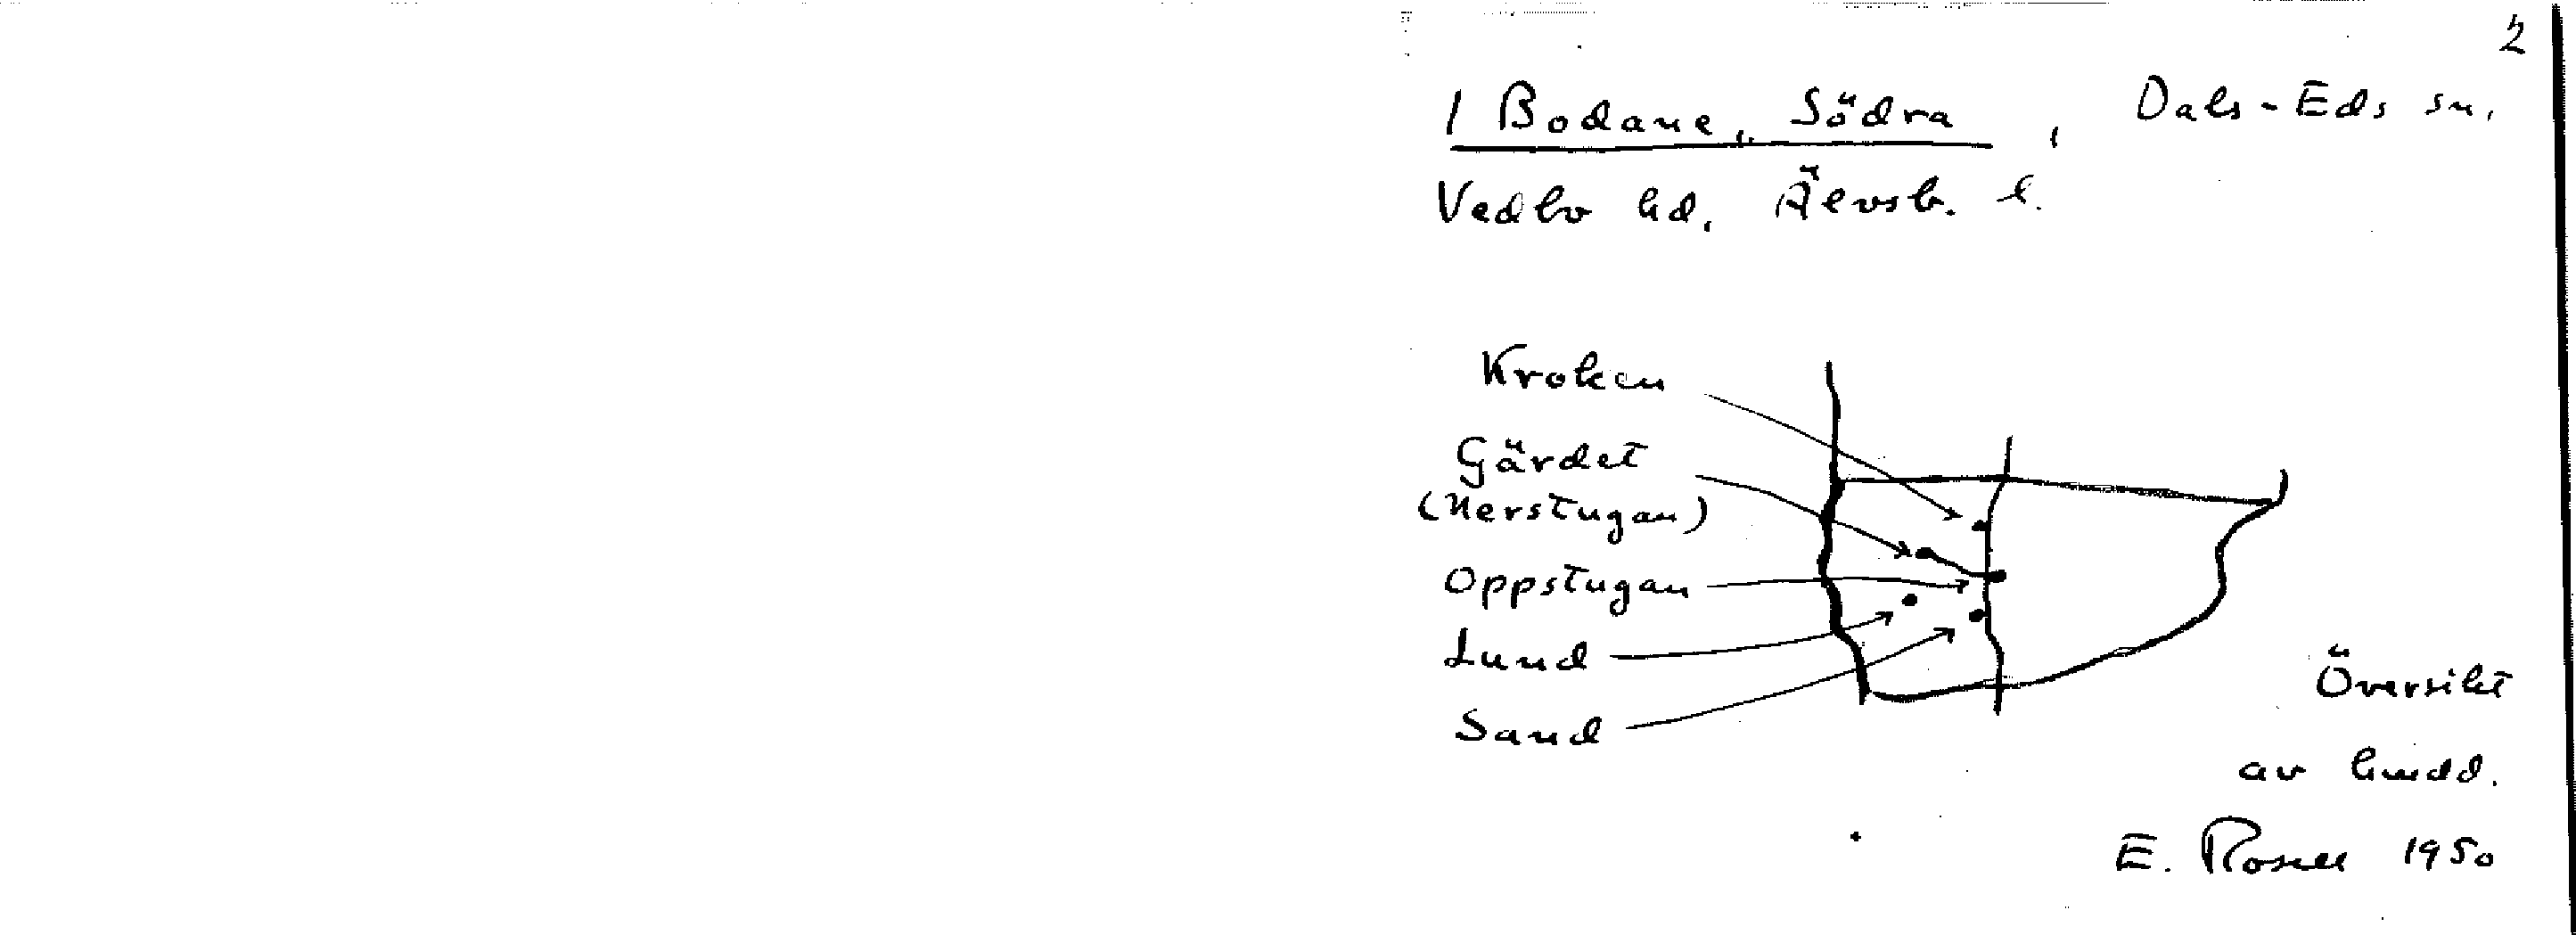 2
1 Bodane, Södra, Dals-Eds sn.
Vedbo hd. Älvsb. l.
Kroken
Gärdet
(Nerstugan)
Oppstugan
Lund
Sand
Översikt
av
E. Rosell 1950